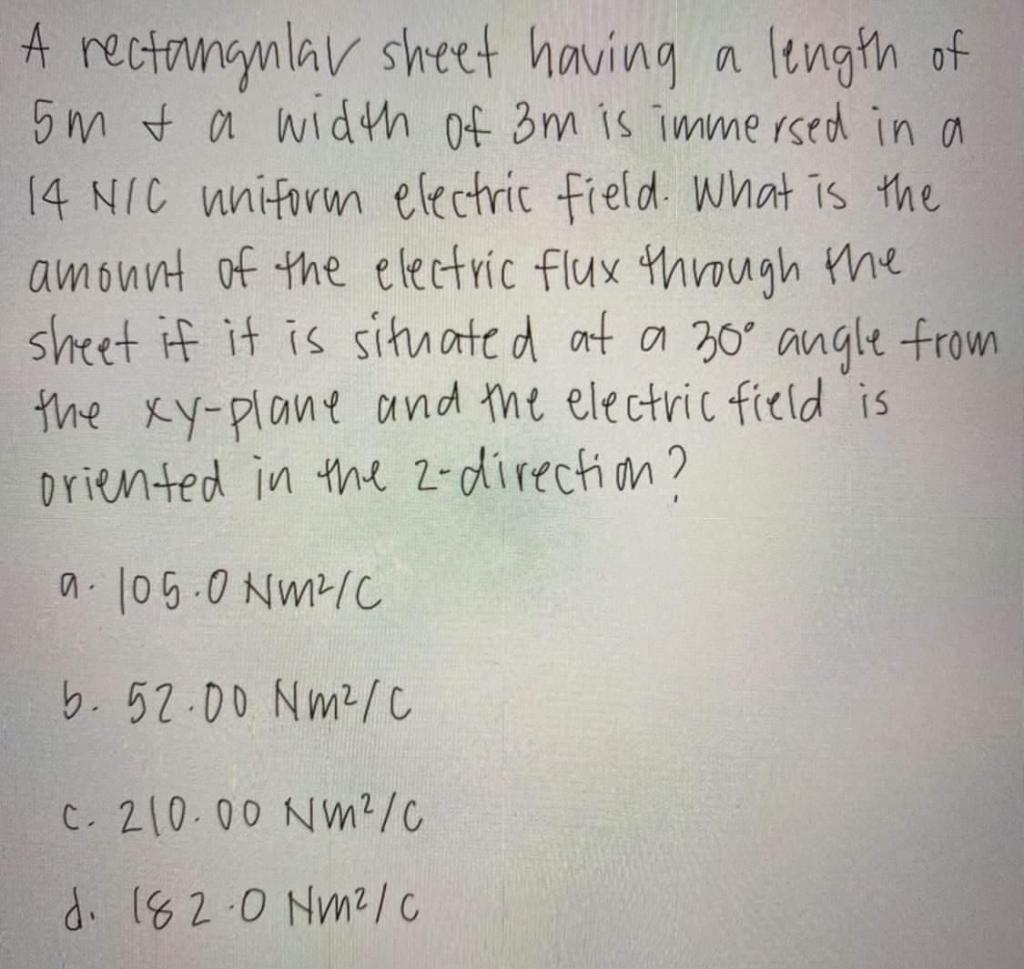 A rectangular sheet having a length of
5m & a width of 3m is immersed in a
14 N/C uniform electric field. What is the
amount of the electric flux through the
sheet if it is situated at a 30° angle from
the xy-plane and the electric field is
oriented in the z-direction?
a. 105.0 Nm²/C
b. 52.00 Nm²/C
c. 210.00 Nm²/C
d. 182.0 Nm²/C